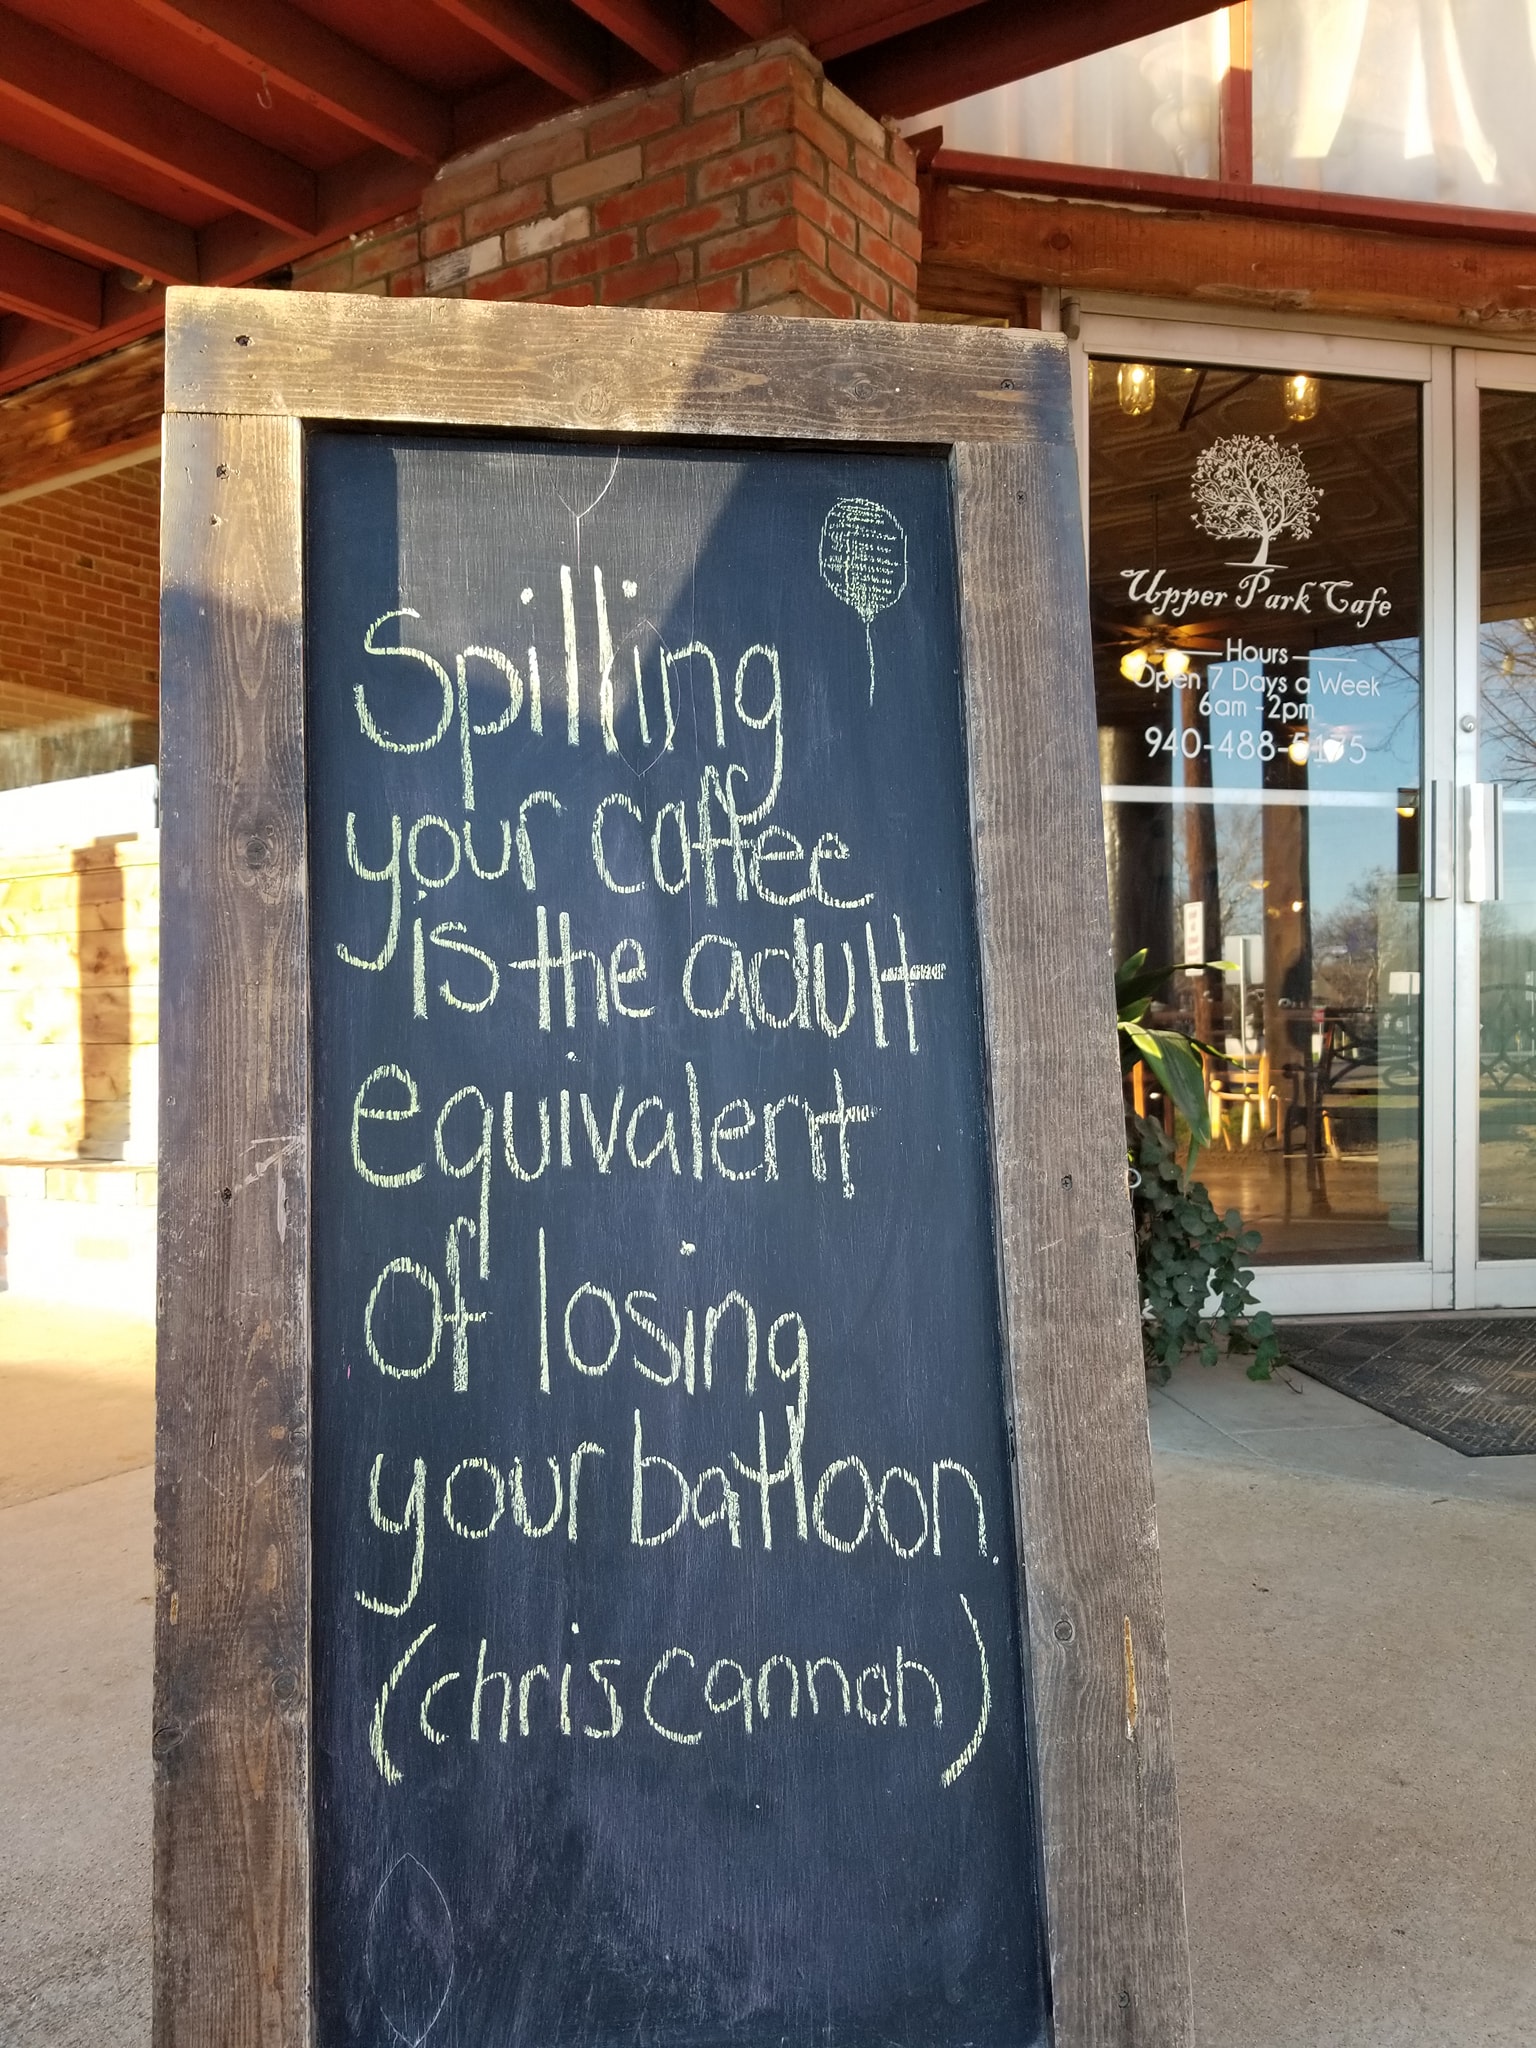 Spilling
your coffee
is the adult
equivalent
of losing
your balloon.
(chris cannon)
Upper Park Cafe
Hours
Open 7 Days a Week
6am - 2pm
940-488-5175